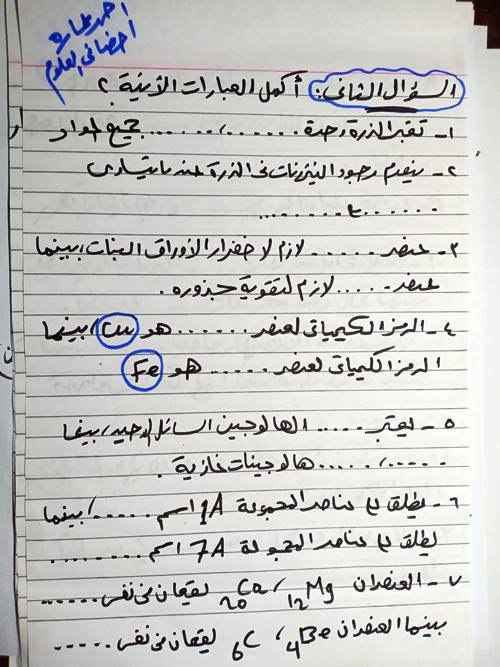 احمد حمدي
اخصائي العلوم
السؤال الثاني: أكمل العبارات الآتية ؟
١- تعتبر الذرة وحدة ......،...... جميع المواد
٢- ينعدم وجود النيترونات في الذرة عندما يتساوى
......، ......
٣- عنصر ...... لازم لاخضرار الأوراق النبات، بينما
عنصر ..... لازم لتقوية جذوره.
٤- الرمز الكيميائي لعنصر ...... هو Cu، بينما
الرمز الكيميائي لعنصر ...... هو Fe
٥- يعتبر ..... الهالوجين السائل الوحيد، بينما
.....،..... هالوجينات غازية.
٦- يطلق على عناصر المجموعة 1A اسم .....، بينما
يطلق على عناصر المجموعة 7A اسم ........
٧- العنصران ₂₀Ca، ₁₂Mg يقعان في نفس ......
بينما العنصران ₆C، ₄Be يقعان في نفس .....